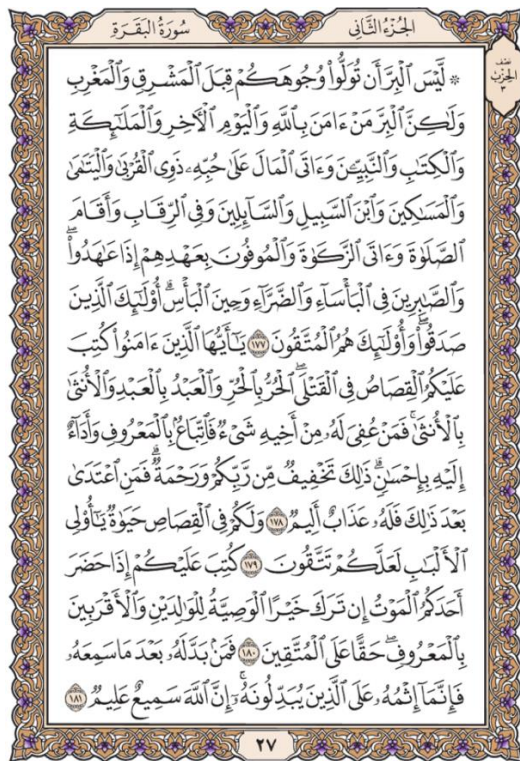 الجُزْءُ الثَّانِي
سُورَةُ البَقَرَةِ
نصف
الحزب
٣
۞ لَّيْسَ ٱلْبِرَّ أَن تُوَلُّوا۟ وُجُوهَكُمْ قِبَلَ ٱلْمَشْرِقِ وَٱلْمَغْرِبِ
وَلَٰكِنَّ ٱلْبِرَّ مَنْ ءَامَنَ بِٱللَّهِ وَٱلْيَوْمِ ٱلْـَٔاخِرِ وَٱلْمَلَٰٓئِكَةِ
وَٱلْكِتَٰبِ وَٱلنَّبِيِّـۧنَ وَءَاتَى ٱلْمَالَ عَلَىٰ حُبِّهِۦ ذَوِى ٱلْقُرْبَىٰ وَٱلْيَتَٰمَىٰ
وَٱلْمَسَٰكِينَ وَٱبْنَ ٱلسَّبِيلِ وَٱلسَّآئِلِينَ وَفِى ٱلرِّقَابِ وَأَقَامَ
ٱلصَّلَوٰةَ وَءَاتَى ٱلزَّكَوٰةَ وَٱلْمُوفُونَ بِعَهْدِهِمْ إِذَا عَٰهَدُوا۟ۖ
وَٱلصَّٰبِرِينَ فِى ٱلْبَأْسَآءِ وَٱلضَّرَّآءِ وَحِينَ ٱلْبَأْسِۗ أُو۟لَٰٓئِكَ ٱلَّذِينَ
صَدَقُوا۟ۖ وَأُو۟لَٰٓئِكَ هُمُ ٱلْمُتَّقُونَ ١٧٧ يَٰٓأَيُّهَا ٱلَّذِينَ ءَامَنُوا۟ كُتِبَ
عَلَيْكُمُ ٱلْقِصَاصُ فِى ٱلْقَتْلَىۖ ٱلْحُرُّ بِٱلْحُرِّ وَٱلْعَبْدُ بِٱلْعَبْدِ وَٱلْأُنثَىٰ
بِٱلْأُنثَىٰۚ فَمَنْ عُفِىَ لَهُۥ مِنْ أَخِيهِ شَىْءٌ فَٱتِّبَاعٌۢ بِٱلْمَعْرُوفِ وَأَدَآءٌ
إِلَيْهِ بِإِحْسَٰنٍۗ ذَٰلِكَ تَخْفِيفٌ مِّن رَّبِّكُمْ وَرَحْمَةٌۗ فَمَنِ ٱعْتَدَىٰ
بَعْدَ ذَٰلِكَ فَلَهُۥ عَذَابٌ أَلِيمٌ ١٧٨ وَلَكُمْ فِى ٱلْقِصَاصِ حَيَوٰةٌ يَٰٓأُو۟لِى
ٱلْأَلْبَٰبِ لَعَلَّكُمْ تَتَّقُونَ ١٧٩ كُتِبَ عَلَيْكُمْ إِذَا حَضَرَ
أَحَدَكُمُ ٱلْمَوْتُ إِن تَرَكَ خَيْرًا ٱلْوَصِيَّةُ لِلْوَٰلِدَيْنِ وَٱلْأَقْرَبِينَ
بِٱلْمَعْرُوفِۖ حَقًّا عَلَى ٱلْمُتَّقِينَ ١٨٠ فَمَنۢ بَدَّلَهُۥ بَعْدَ مَا سَمِعَهُۥ
فَإِنَّمَآ إِثْمُهُۥ عَلَى ٱلَّذِينَ يُبَدِّلُونَهُۥٓۚ إِنَّ ٱللَّهَ سَمِيعٌ عَلِيمٌ ١٨١
٢٧